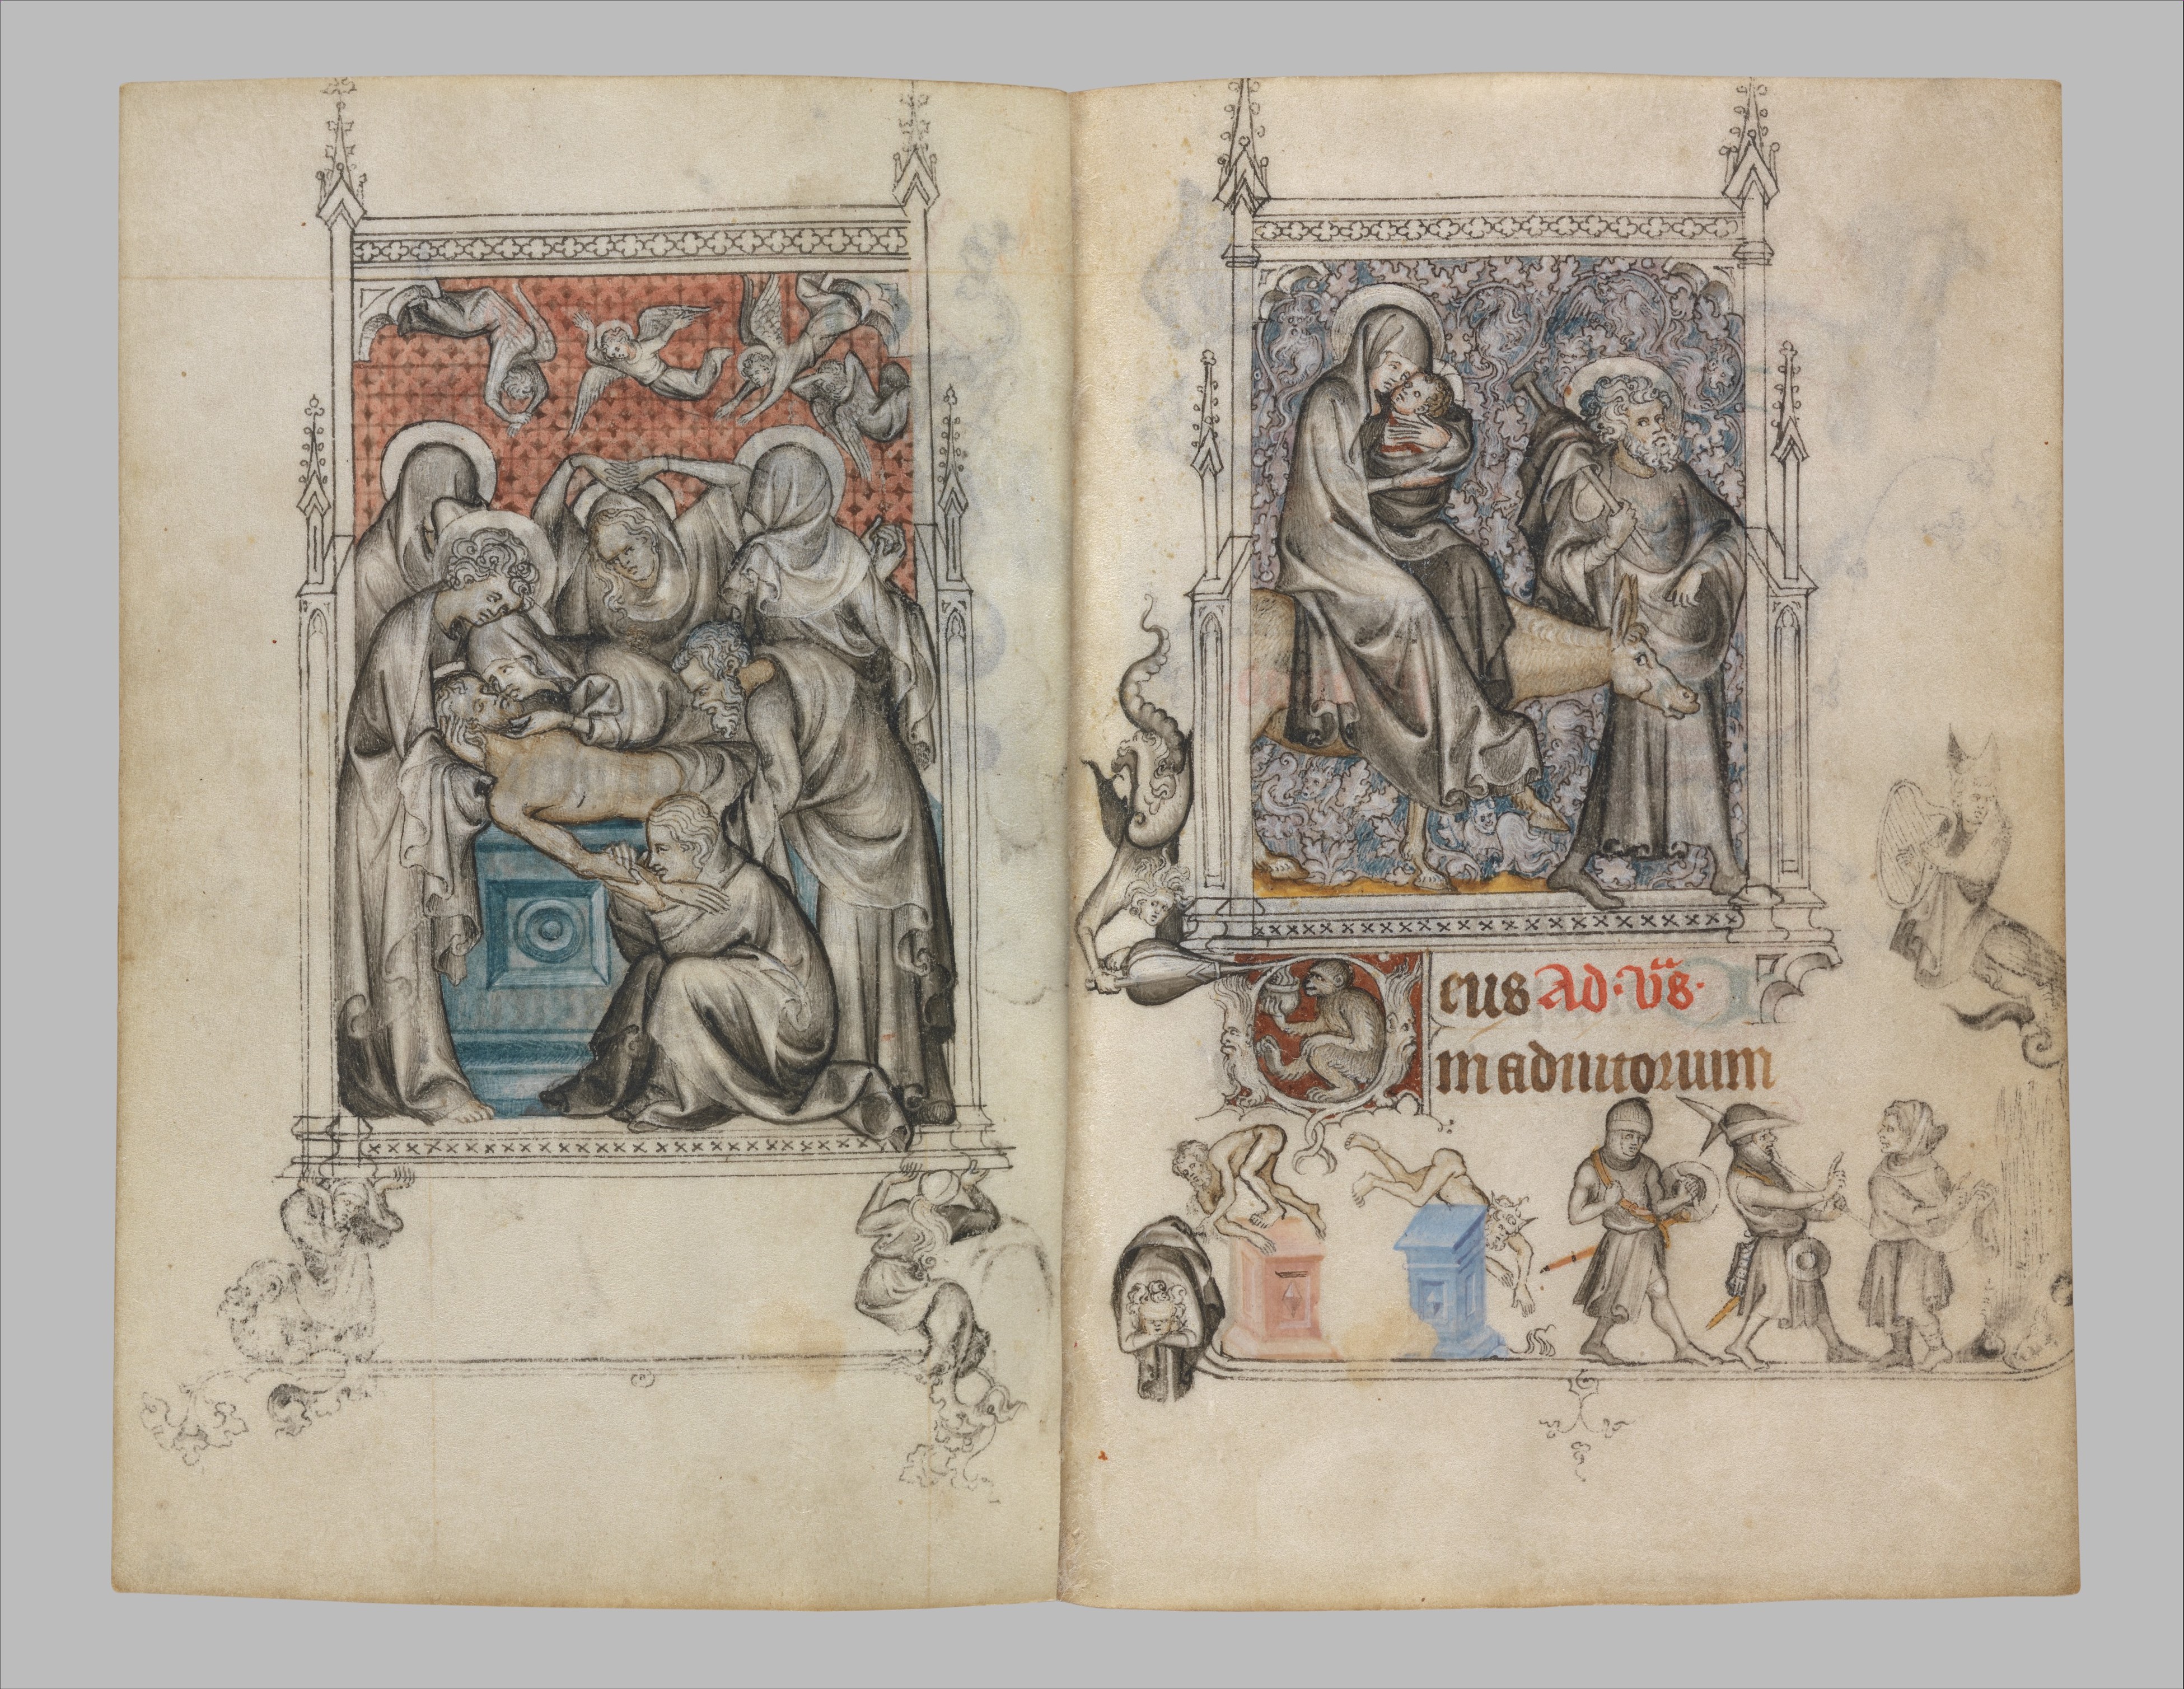 Deus Ad: v̄s.
in adiutorium